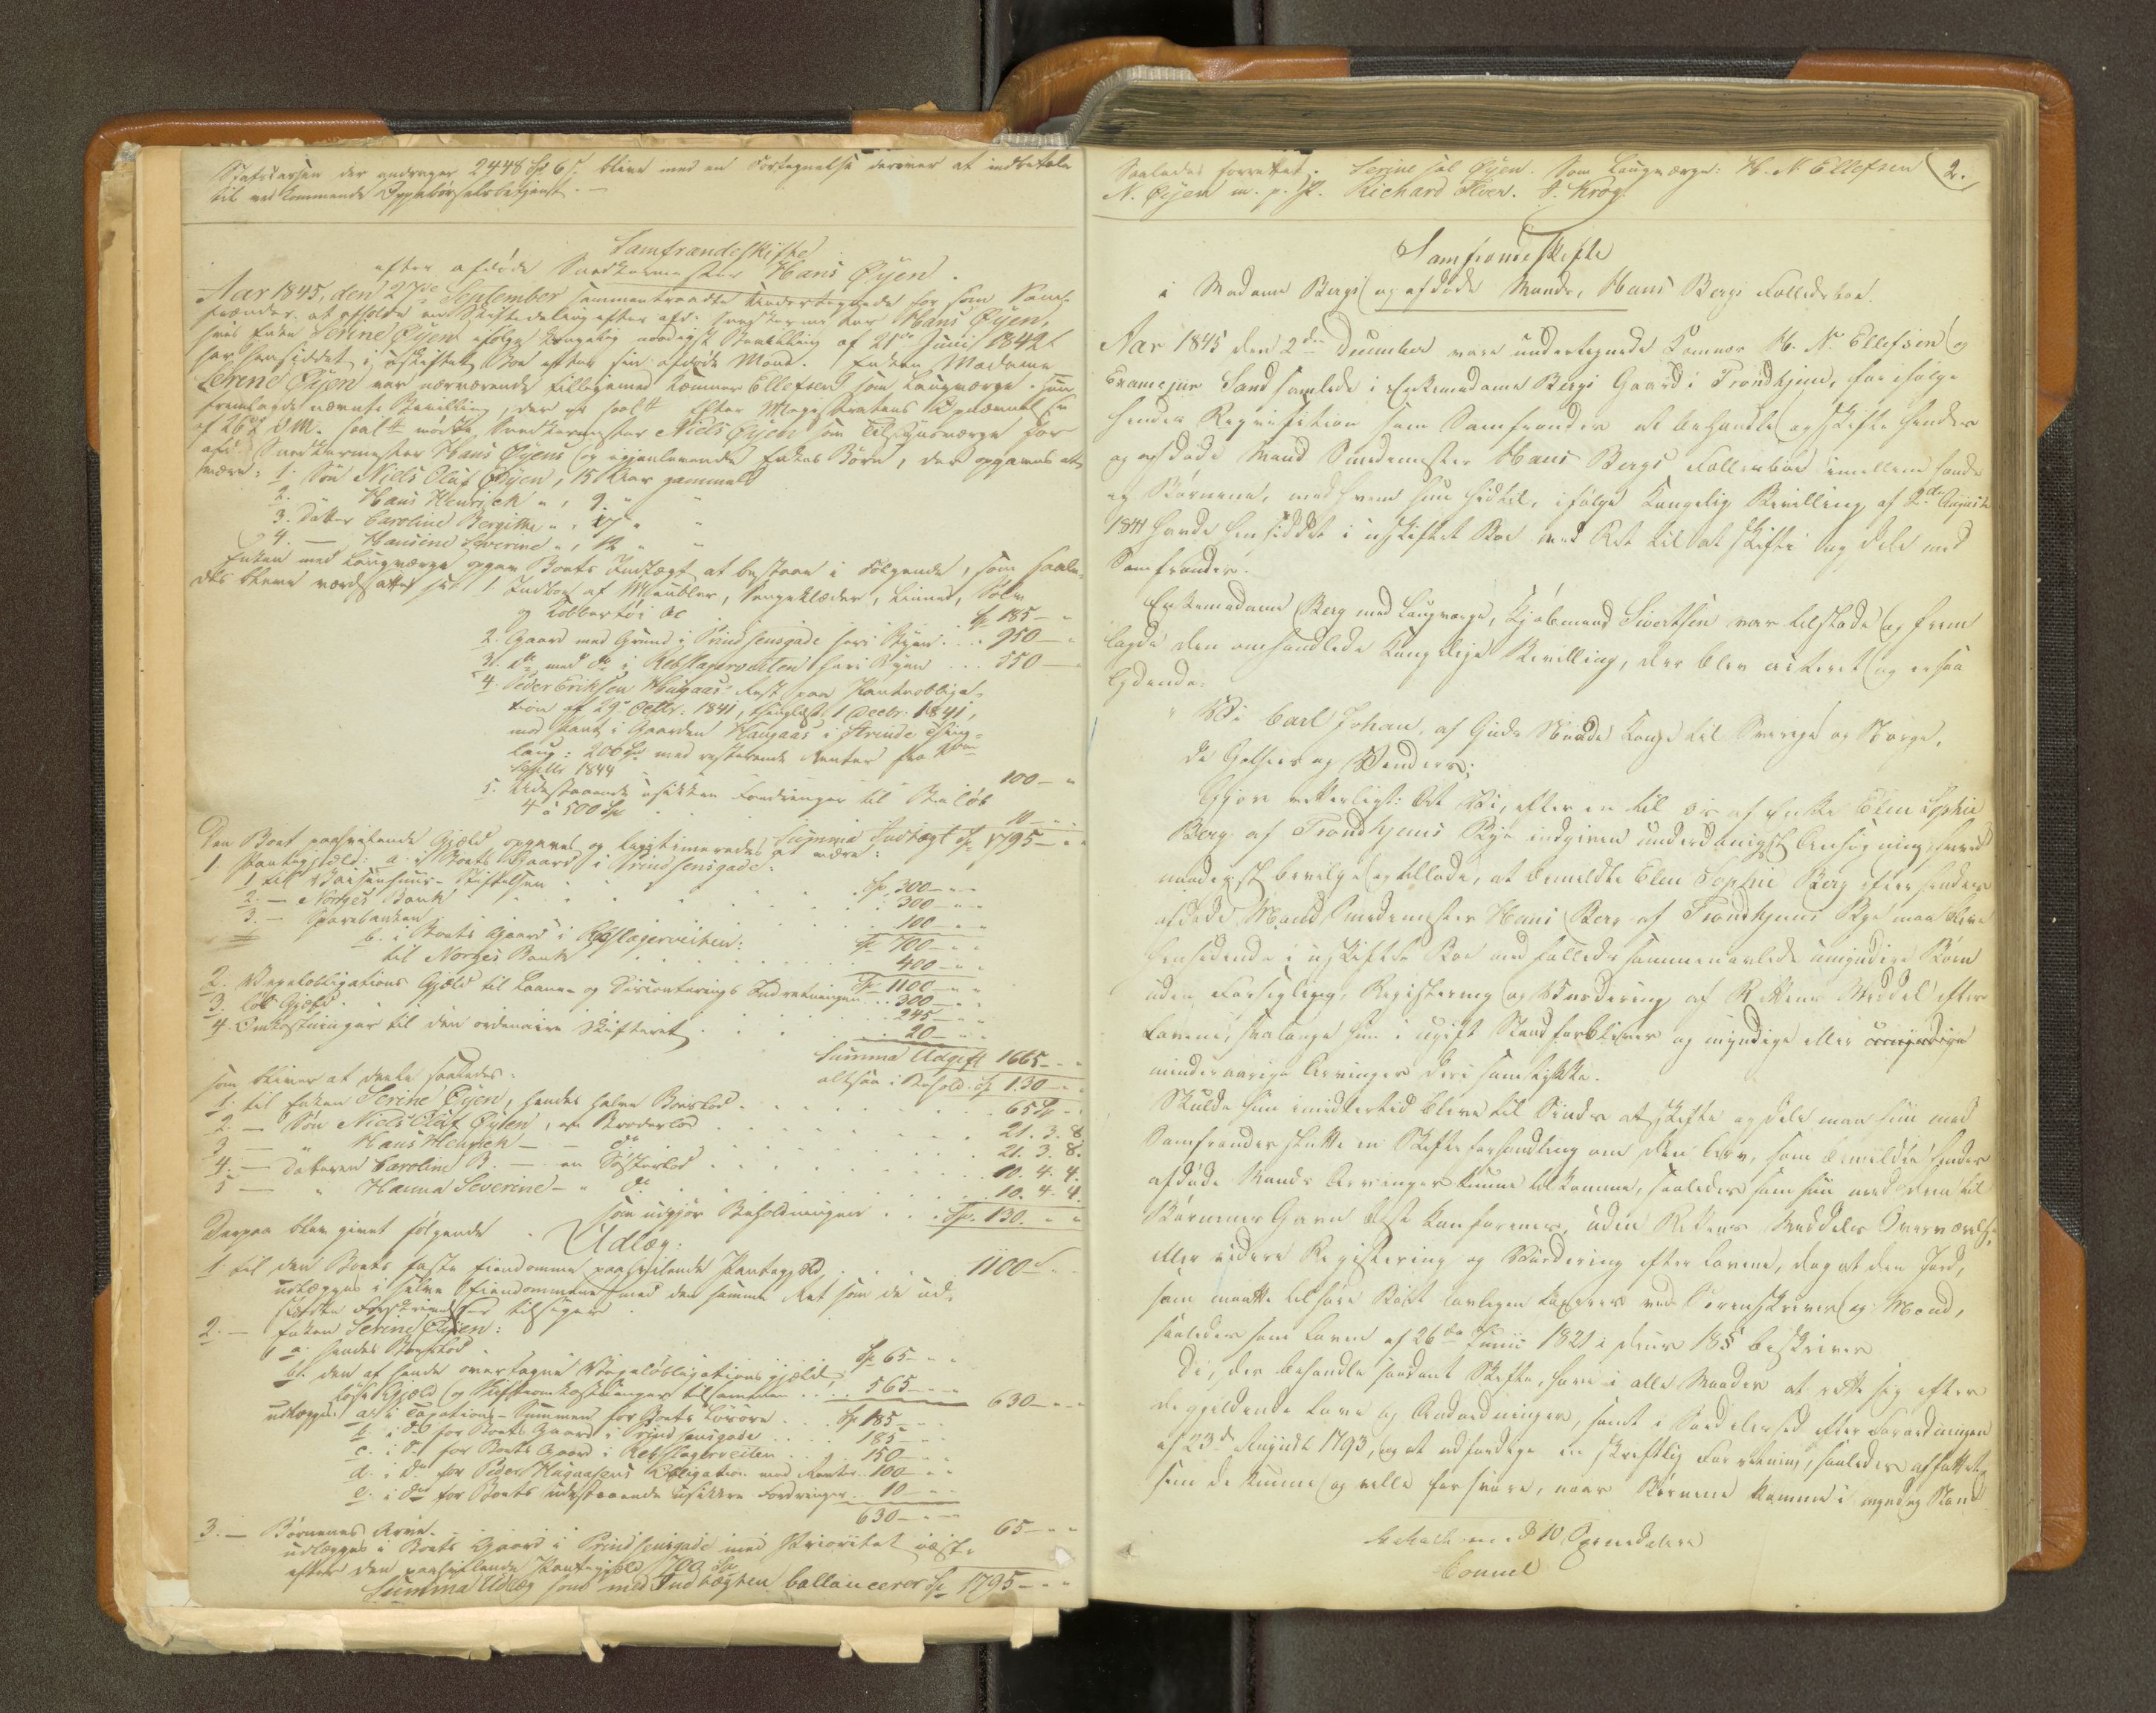 Skatskarsen der andrager 2448 Sp 6 s. bliver med en Fortegnelse derover at indbetale
til vedkommende Oppebørselsbetjent. —
Samfrændeskifte
efter afdøde Snedkermester Hans Øyen.
Aar 1845, den 27de September sammentraadte Undertegnede for som Sam-
frænder at afholde en Skiftedeling efter afd. Snedkermester Hans Øyen,
hvis Enke Serine Øyen ifølge Kongelig naadigst Bevilling af 21de Junii 1842
har hensiddet i uskiftet Boe efter sin afdøde Mand. Enken Madame
Serine Øyen var nærværende tilligemed Kæmner Ellefsen som Laugværge. Hun
fremlagde nævnte Bevilling, der er saal. Efter Magistratens Opnævnelse
af 26de d. M. saal. mødte Snedkermester Niels Øyen som Tilsynsværge for
afd. Snedkermester Hans Øyens og igjenlevende Enkes Børn, der opgaves at
være: 1. Søn Niels Oluf Øyen, 15 Aar gammel
2. " Hans Henrich " , 9 " "
3. Datter Caroline Bergitte " , 17 " "
4. — Hansine Severine " , 12 " "
Enken med Laugværge opgav Boets Indtægt at bestaae i Følgende, som saale-
des bleve værdsatte: 1. Indboe af Meubler, Sengeklæder, Linned, Sølv
og Kobbertøi &c . . . Sp 185 — "
2. Gaard med Grund i Prindsensgade her i Byen . . " 950 — "
3. do med do i Rebslagerveiten her i Byen . . . 550 — "
4. Peder Eriksen Haugaas' Rest paa Panteobliga-
tion af 29 Octbr. 1841, thinglæst 1 Decbr. 1841,
med Pant i Gaarden Haugaas i Strinde Thing-
laug: 206 Sp med resterende Renter fra
1844 . . . 100 — "
5. Udestaaende usikkre Fordringer til Beløb
4 à 500 Sp . . . 10 — "
Summa Indtægt Sp 1795 — "
Den Boet paahvilende Gjæld opgaves og legitimeredes at være:
1. Pantegjæld: a. i Boets Gaard i Prindsensgade:
1. til Waisenhuus-Stiftelsen . . . Sp. 300 — "
2. — Norges Bank . . . 300 — "
3. — Sparebanken . . . 100 — "
Sp 700 — "
b. i Boets Gaard i Rebslagerveiten:
til Norges Bank . . . 400 — "
Sp 1100 — "
2. Vexelobligations Gjæld til Laane- og Disconterings Indretningen . . 300 — "
3. Løs Gjæld . . . 245 — "
4. Omkostninger til den ordenaire Skifteret . . . 20 — "
Summa Udgift 1665 — "
altsaa i Behold. Sp 130 — "
som bliver at deele saaledes:
1. til Enken Serine Øyen, hendes halve Boeslod . . . 65 Sp — "
2. — Søn Niels Oluf Øyen, en Broderlod . . . 21. 3. 8
3. — " Hans Henrich — — do . . . 21. 3. 8.
4. — Datteren Caroline B. — en Søsterlod . . . 10. 4. 4.
5. — " Hanna Severine — " do . . . 10. 4. 4.
som udgjør Beholdningen . . . Sp. 130. — "
Derpaa blev givet følgende Udlæg:
1. til den Boets faste Eiendomme paahvilende Pantegjæld . . . 1100 — "
udlægges i selve Eiendommene med den samme Ret som de ud-
stedte Forskrivelser tilsiger.
2. — Enken Serine Øyen:
a. hendes Boeslod . . . Sp 65 — "
b. den af hende overtagne Vexelobligationsgjæld,
løse Gjæld og Skifteomkostninger tilsammen . . . 565 — "
630 — "
udlægges a. i Taxations-Summen for Boets Løsøre . . . Sp 185 — "
b. i do for Boets Gaard i Prindsensgade . . . 185 — "
c. i do for Boets Gaard i Rebslagerveiten . . . 150 — "
d. i do for Peder Haugaasens Obligation med Renter . . 100 — "
e. i do for Boets udestaaende usikkre Fordringer . . 10 — "
630 — "
3. — Børnenes Arv . . . 65 — "
udlægges i Boets Gaard i Prindsensgade med Prioritet næst-
efter den paahvilende Pantegjæld 700 Sp
Summa Udlæg som med Indtægten ballancerer Sp 1795 — "
Saaledes forrettet. Serine sal Øyen. Som Laugværge: H. N. Ellefsen
N. Øyen m. p. P. Richard Floer. J. Krog.
2.
Samfrændeskifte
i Madame Bergs og afdøde Mands, Hans Bergs Fælledsboe.
Aar 1845 den 2den December vare undertegnede Kæmner H. N. Ellefsen og
Examejur Sand samlede i Enkemadame Bergs Gaard i Trondhjem, for ifølge
hendes Requisition som Samfrænder at behandle og skifte hendes
og afdøde Mand Smedemester Hans Bergs Fællesboe imellem hende
og Børnene, med hvem hun hidtil, ifølge Kongelig Bevilling af 2den August
1841 havde hensiddet i uskiftet Boe med Ret til at skifte og dele med
Samfrænder.
Enkemadame Berg med Laugværge, Kjøbmand Sivertsen var tilstæde og frem
lagde den omhandlede Kongelige Bevilling, der blev acteret og er saa
lydende:
" Vi Carl Johan, af Guds Naade Konge til Sverige og Norge,
de Gothers og Venders;
Gjøre vitterligt: At Vi, efter en til os af Enke Elen Sophie
Berg af Trondhjems Bye indgiven underdanigst Ansøgning herved
naadigst bevilge og tillade, at bemeldte Elen Sophie Berg efter hendes
afdøde Mand Smedemester Hans Berg af Trondhjems Bye maa blive
hensidende i uskiftet Boe med fælleds sammenavlede umyndige Børn
uden Forsegling, Registering og Vurdering af Rettens Middel efter
Lovene, saalænge hun i ugift Stand forbliver og myndige eller umyndige
mindreaarige Arvinger deri samtykke.
Skulde hun imidlertid blive til Sinds at skifte og dele maa hun med
Samfrænder slutte en Skifteforhandling om den Arv, som bemeldte hendes
afdøde Mands Arvinger kunne tilkomme, saaledes som hun med dem til
Børnenes Gavn best kan forenes, uden Rettens Middels Overværelse,
eller videre Registering og Vurdering efter Lovene, dog at den Jord,
som maatte tilhøre Boet lovligen taxeres ved Sorenskriver og Mænd,
saaledes som Loven af 26de Junii 1821 i dens 18 § beskriver
De, der behandle saadant Skifte, have i alle Maader at rette sig efter
de gjeldende Love og Anordninger, samt i Særdeleshed efter Forordningen
af 23de August 1793, og at udfærdige en skriftlig Forretning, saaledes affattet,
som de kunne og ville forsvare, naar Børnene komme i myndig Stand
Betalt med 10 Speciedaler